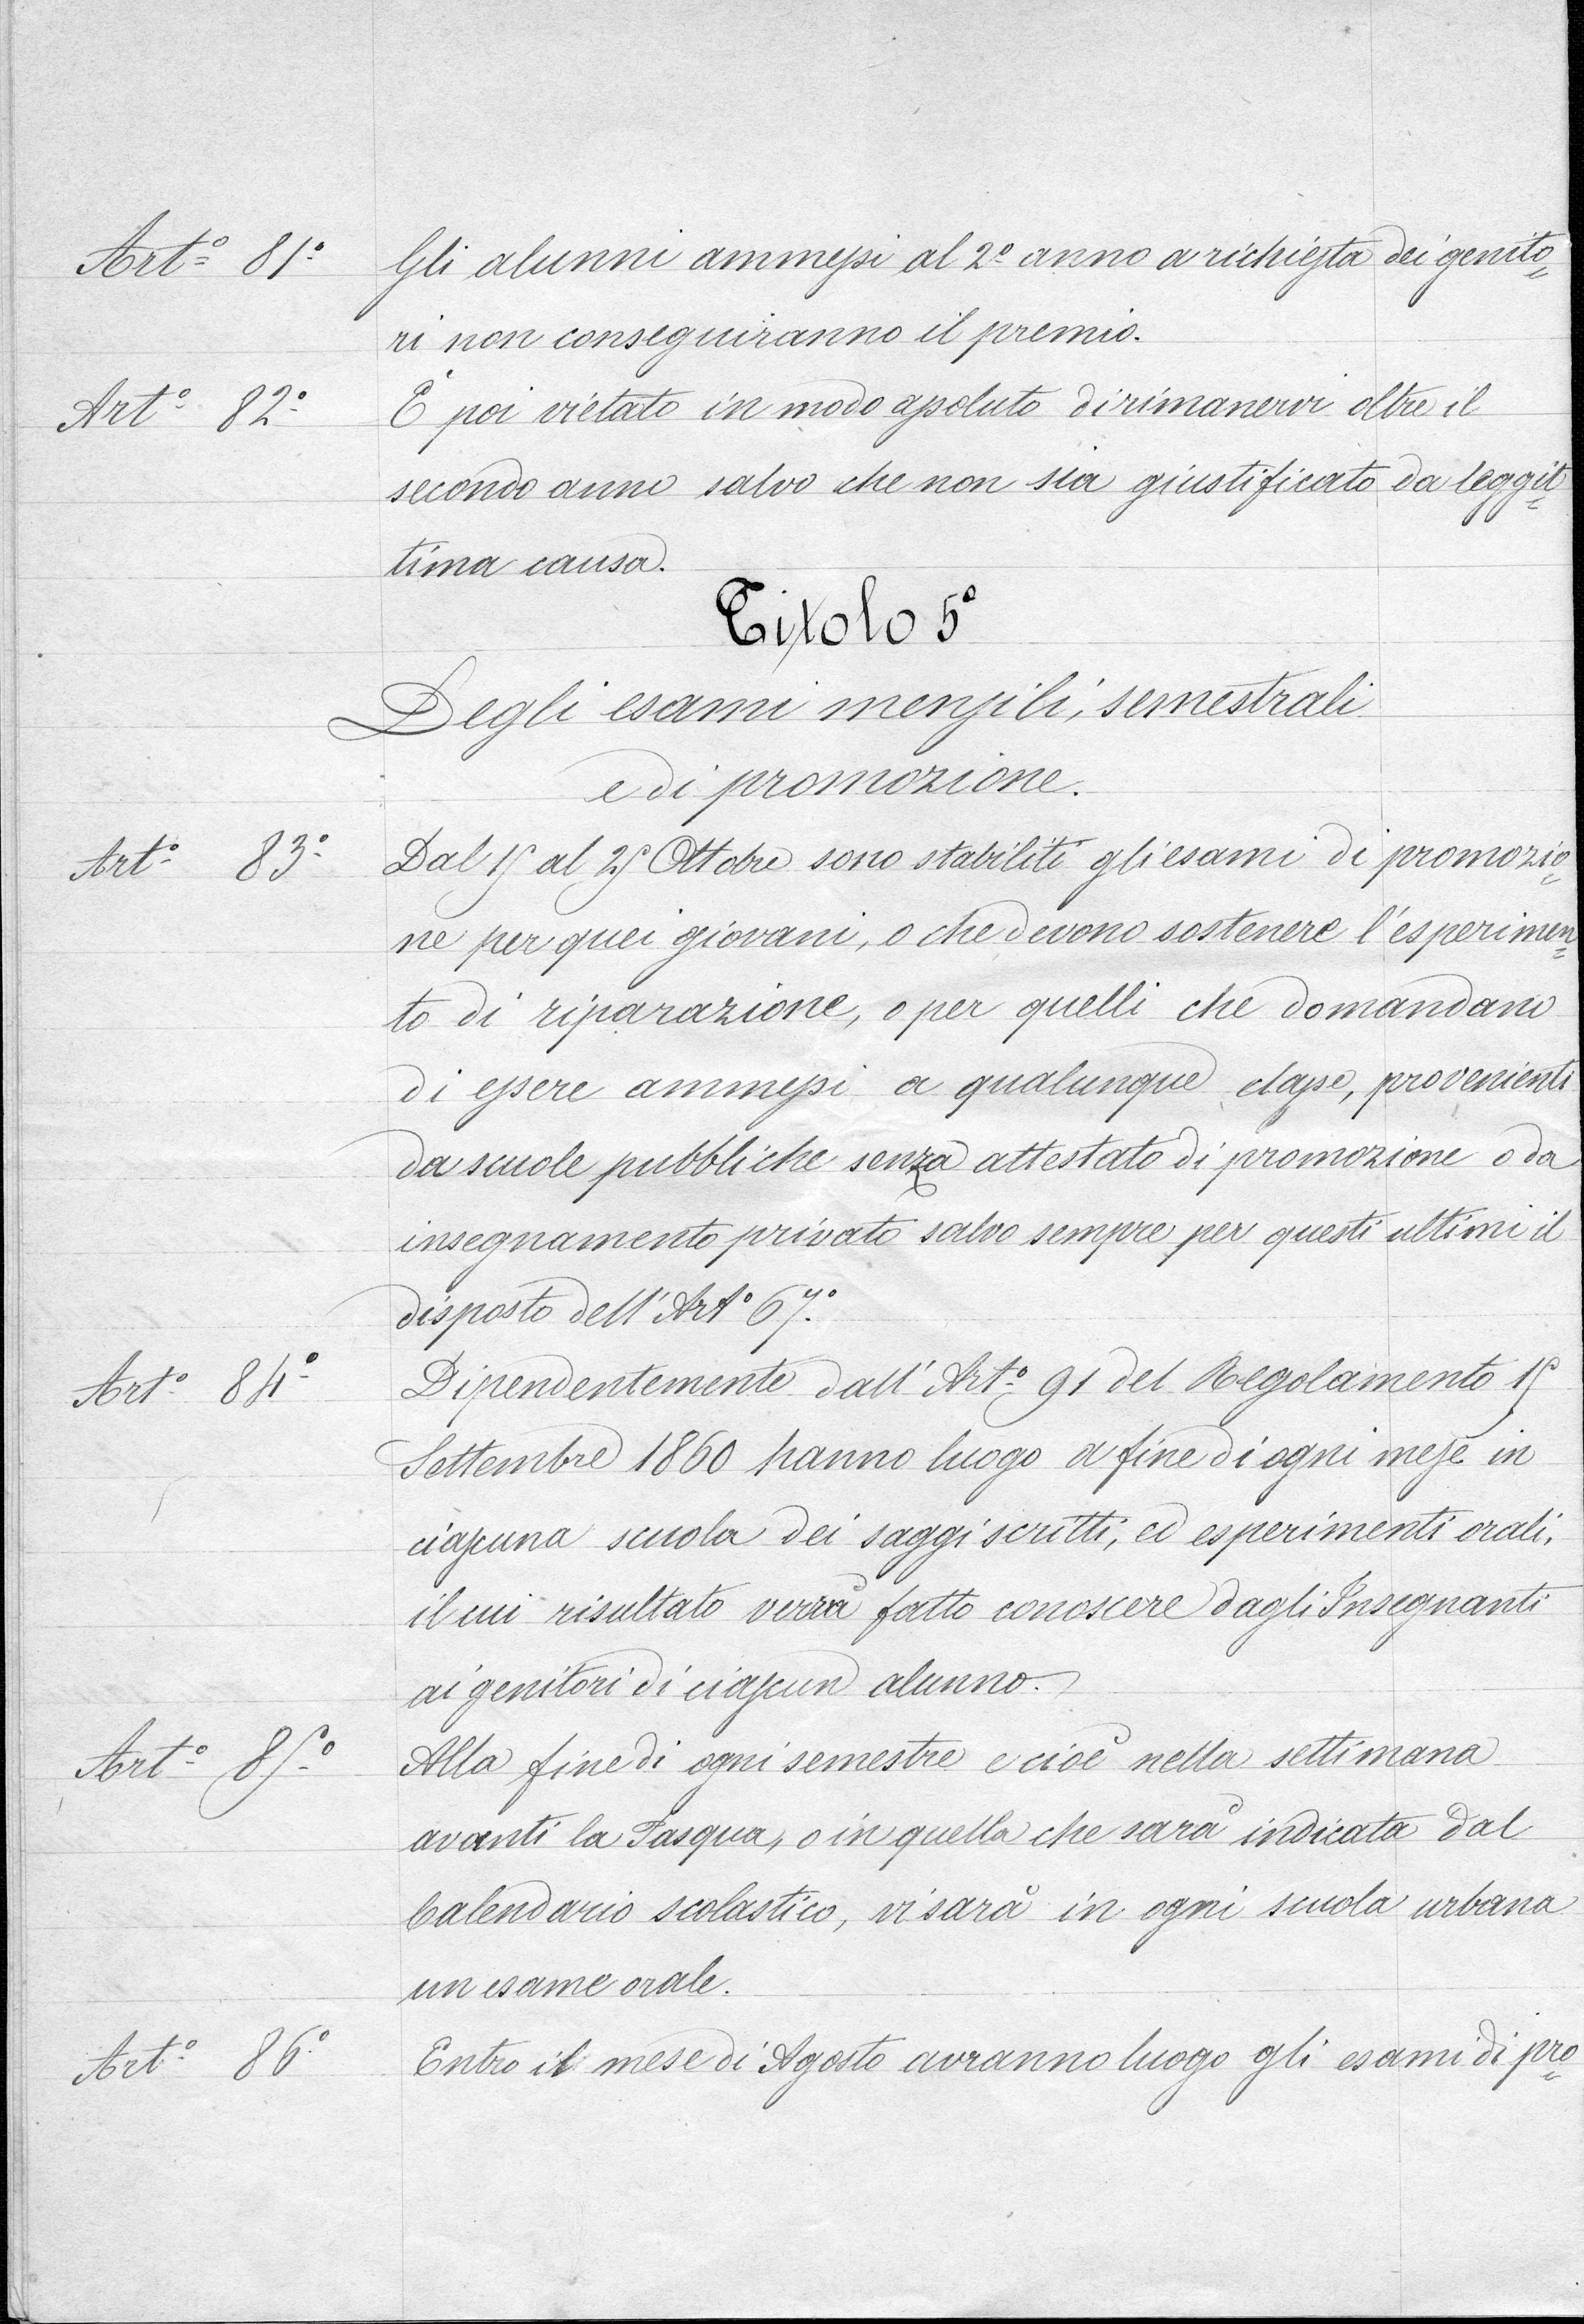 Art.º 81º Gli alunni ammessi al 2º anno a richiesta dei genito=
ri non conseguiranno il premio.
Art.º 82º È poi vietato in modo assoluto di rimanervi oltre il
secondo anno salvo che non sia giustificato da leggit=
tima causa.
Titolo 5º
Degli esami mensili, semestrali
e di promozione.
Art.º 83º Dal 15 al 25 Ottobre sono stabiliti gli esami di promozio=
ne per quei giovani, o che devono sostenere l'esperimen=
to di riparazione, o per quelli che domandano
di essere ammessi a qualunque classe, provenienti
da scuole pubbliche senza attestato di promozione o da
insegnamento privato salvo sempre per questi ultimi il
disposto dell'Artº 67.º
Art.º 84º Dipendentemente dall'Art.º 91 del Regolamento 15
Settembre 1860 hanno luogo a fine di ogni mese in
ciascuna scuola dei saggi scritti, ed esperimenti orali,
il cui risultato verrà fatto conoscere dagli Insegnanti
ai genitori di ciascun alunno.
Art.º 85º Alla fine di ogni semestre e cioè nella settimana
avanti la Pasqua, o in quella che sarà indicata dal
Calendario scolastico, vi sarà in ogni scuola urbana
un esame orale.
Art.º 86º Entro il mese di Agosto avranno luogo gli esami di pro=